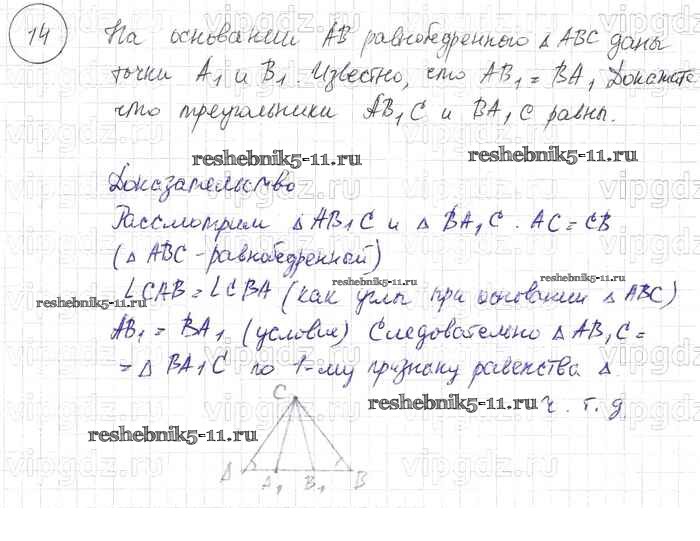 14 На основании AB равнобедренного △ ABC даны
точки A1 и B1. Известно, что AB1 = BA1 Докажите
что треугольники AB1C и BA1C равны.
reshebnik5-11.ru reshebnik5-11.ru
Доказательство
Рассмотрим △ AB1C и △ BA1C. AC = CB
(△ ABC - равнобедренный)
reshebnik5-11.ru reshebnik5-11.ru reshebnik5-11.ru
∠CAB = ∠CBA (как углы при основании △ ABC)
AB1 = BA1 (условия) Следовательно △ AB1C =
= △ BA1C по 1-му признаку равенства △.
reshebnik5-11.ru ч. т. д
C
reshebnik5-11.ru
A A1 B1 B
vipgdz.ru